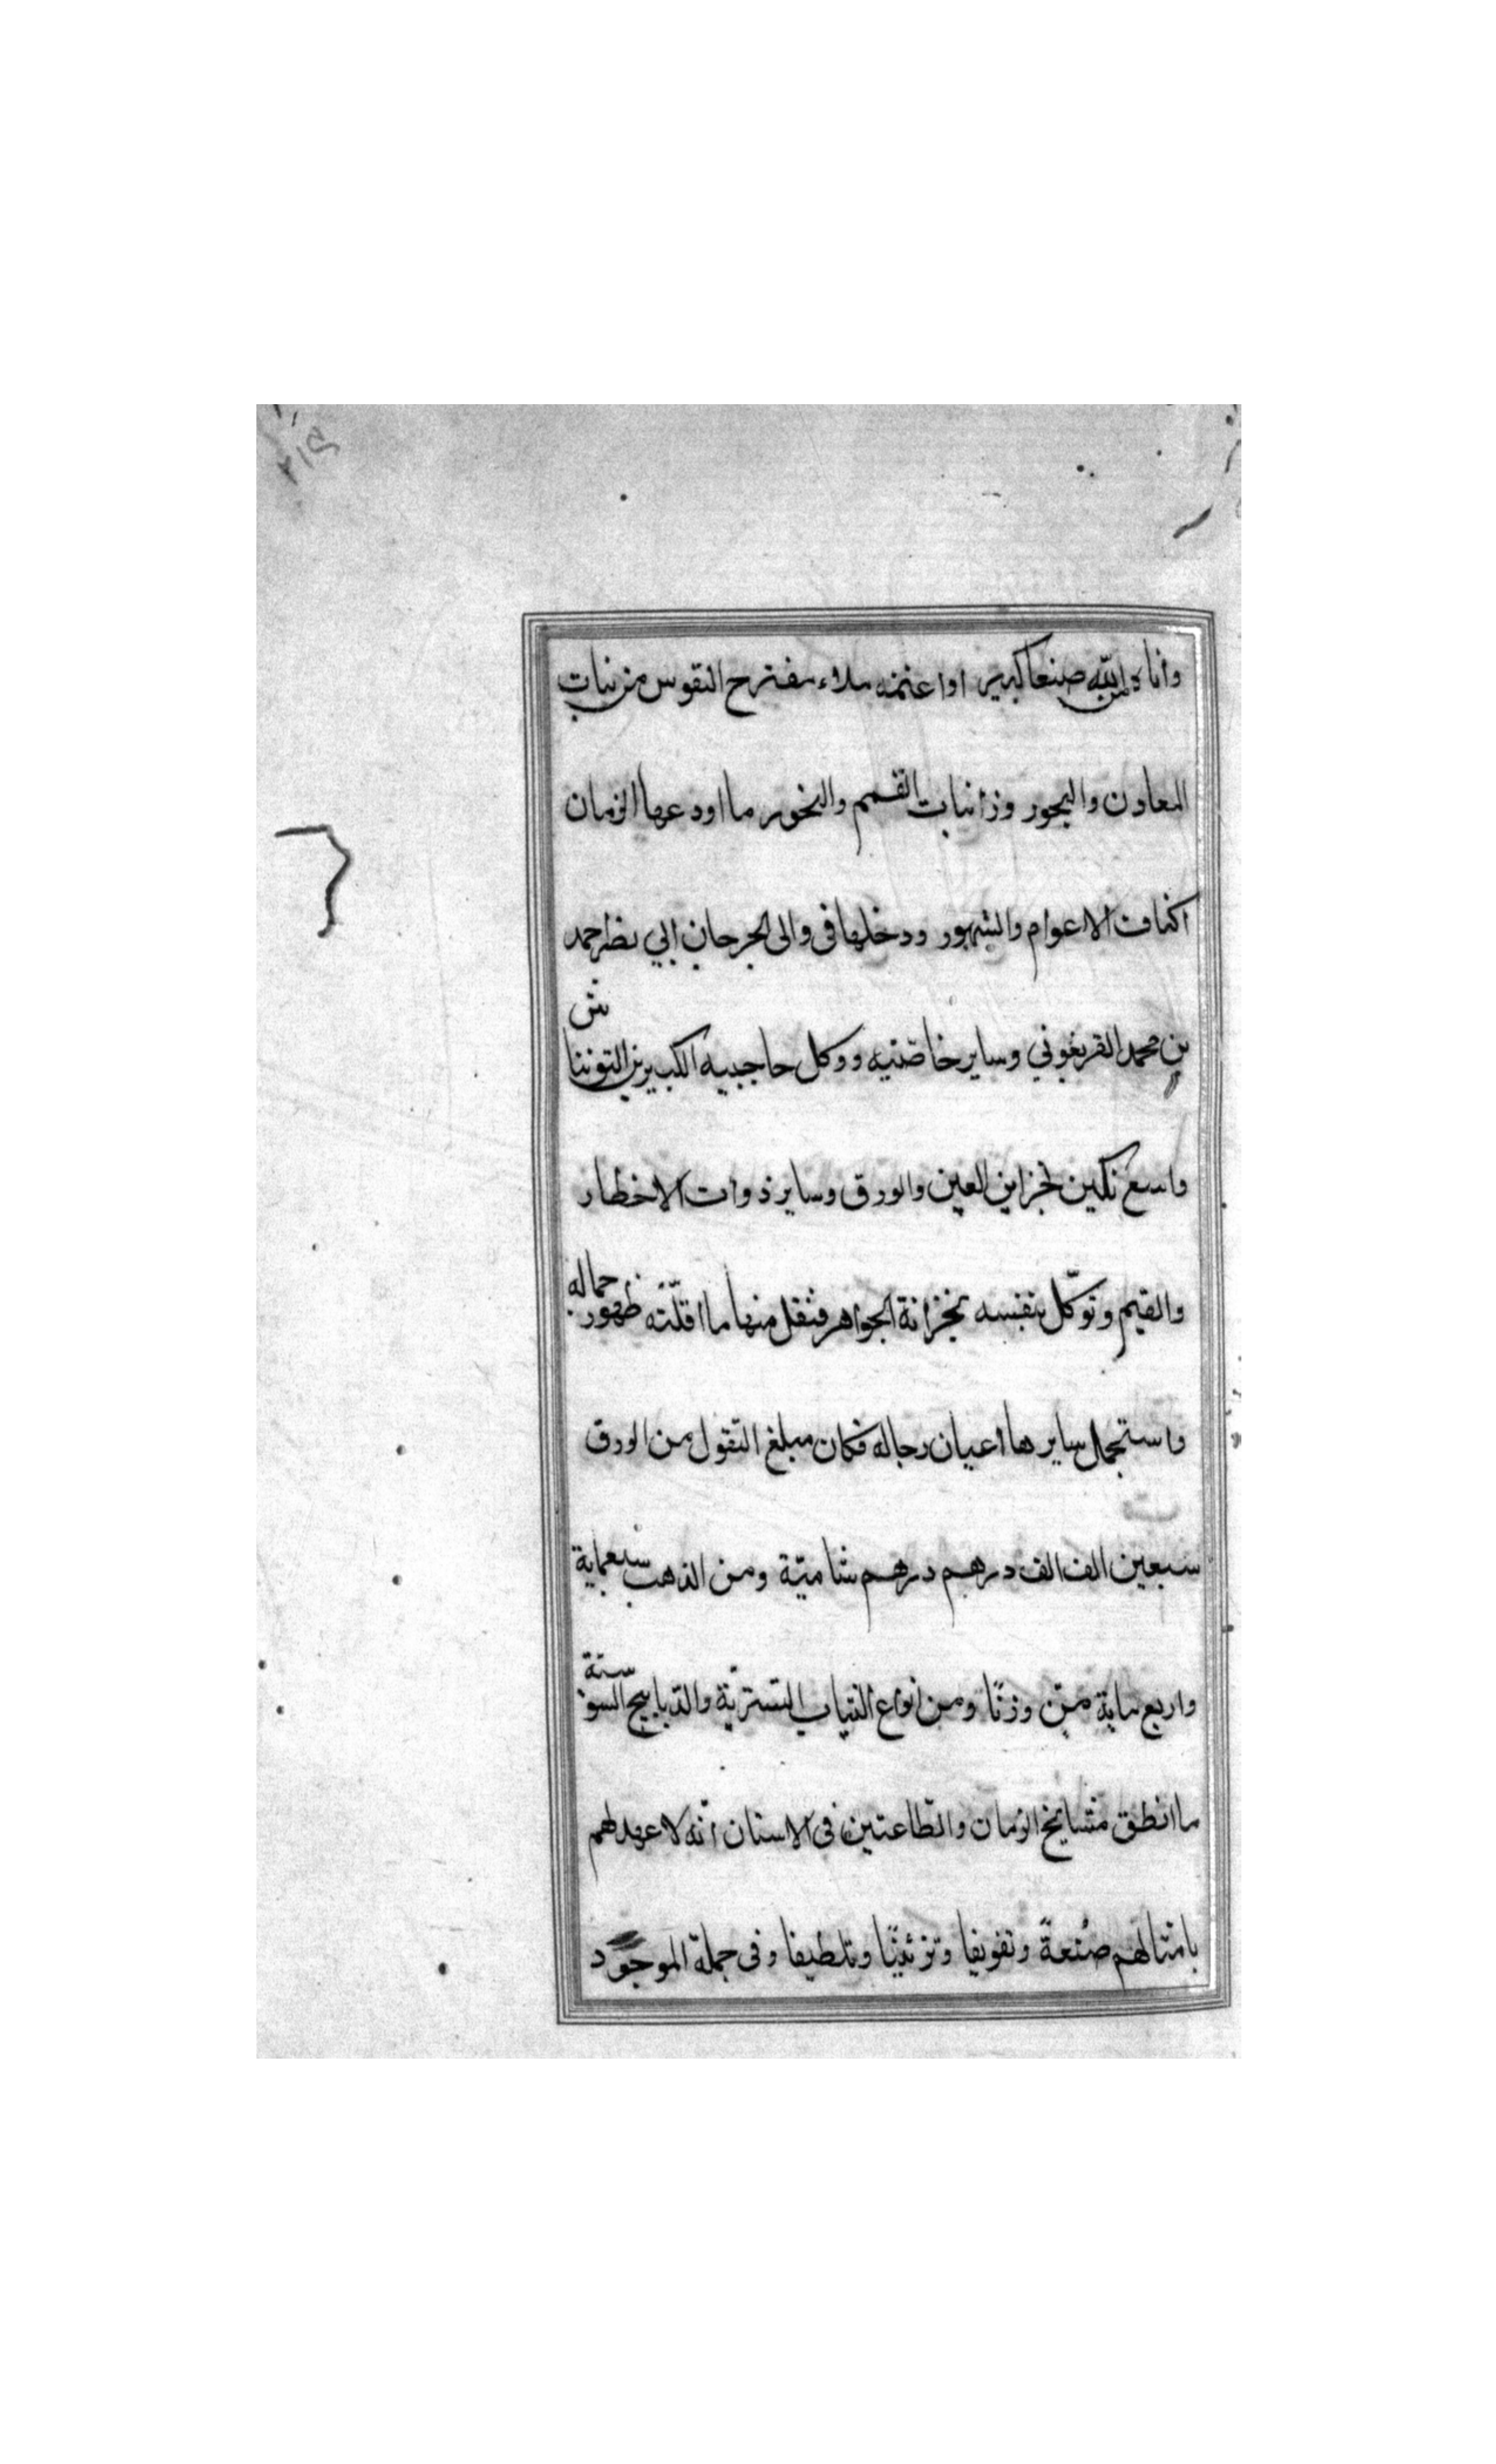 ٢١٥
واتاه الله صنعا كبيرا واغنمه ملاء مقترح النفوس من نبات
المعادن والبحور وزانبات القسم والنحور ما اودعها الزمان
اكناف الاعوام والشهور ودخلها في والى الجرجان ابي نصر احمد
بن محمد الفريغوني وساير خاصتيه ووكل حاجبيه الكبيرين التونتاش
واسغ تكين لخزاين العين والورق وساير ذوات الاخطار
والقيم وتوكل بنفسه بخزانة الجواهر فنقل منها ما اقلته ظهور جماله
واستجمل سايرها اعيان رجاله فكان مبلغ النقول من الورق
سبعين الف الف درهم درهم شامية ومن الذهب سبعماية
واربع ماية من وزنا ومن انواع الثياب التسترية والديابيج السوسنة
ما انطق مشايخ الزمان والطاعنين في الاسنان انه لا عهد لهم
بامثالهم صنعة وتفويفا وتزئينا وتلطيفا وفى جملة الموجود